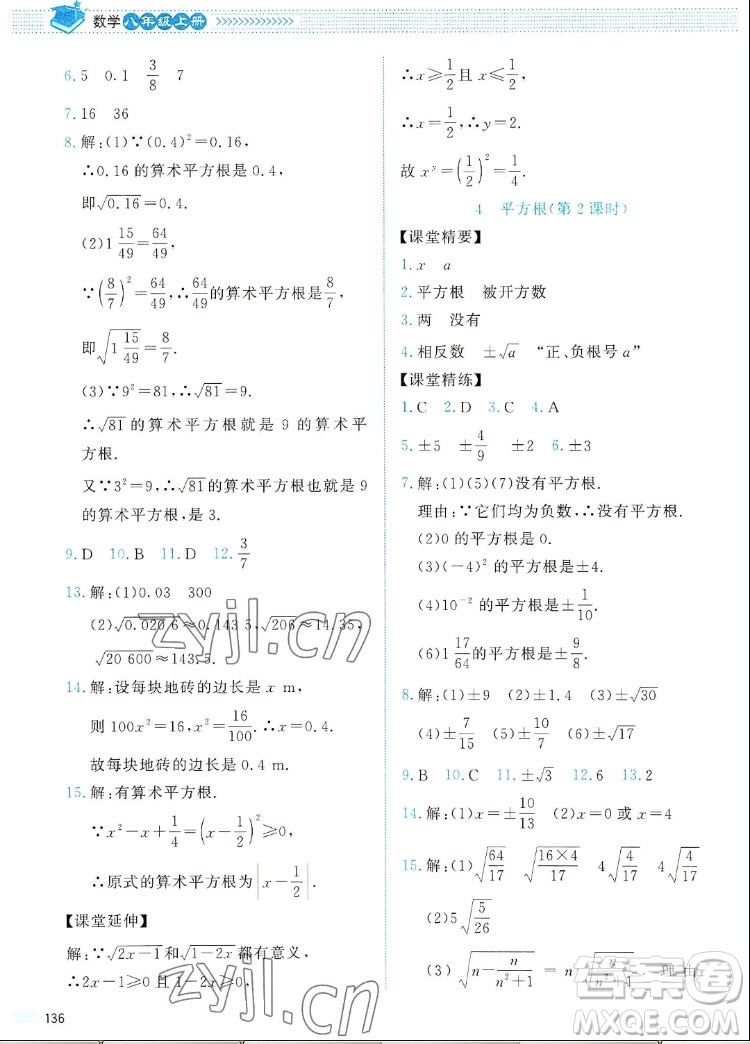 数学八年级上册
6. 5 0.1 3/8 7
7. 16 36
8. 解:(1)∵(0.4)²=0.16,
∴0.16 的算术平方根是 0.4,
即√0.16=0.4.
(2)1 15/49=64/49,
∵(8/7)²=64/49,∴64/49的算术平方根是8/7,
即√(1 15/49)=8/7.
(3)∵9²=81,∴√81=9.
∴√81 的算术平方根就是 9 的算术平
方根.
又∵3²=9,∴√81的算术平方根也就是 9
的算术平方根,是 3.
9. D 10. B 11. D 12. 3/7
13. 解:(1)0.03 300
(2)√0.020 6≈0.143 5,√206≈14.35,
√20 600≈143.5.
14. 解:设每块地砖的边长是 x m,
则 100x²=16,x²=16/100.∴x=0.4.
故每块地砖的边长是 0.4 m.
15. 解:有算术平方根.
∵x²-x+1/4=(x-1/2)²≥0,
∴原式的算术平方根为|x-1/2|.
【课堂延伸】
解:∵√(2x-1)和√(1-2x)都有意义,
∴2x-1≥0 且 1-2x≥0.
136
∴x≥1/2且 x≤1/2.
∴x=1/2.∴y=2.
故 xʸ=(1/2)²=1/4.
4 平方根(第 2 课时)
【课堂精要】
1. x a
2. 平方根 被开方数
3. 两 没有
4. 相反数 ±√a “正、负根号 a”
【课堂精练】
1. C 2. D 3. C 4. A
5. ±5 ±4/9 ±2 6. ±3
7. 解:(1)(5)(7)没有平方根.
理由:∵它们均为负数,∴没有平方根.
(2)0 的平方根是 0.
(3)(-4)²的平方根是±4.
(4)10⁻²的平方根是±1/10.
(6)1 17/64的平方根是±9/8.
8. 解:(1)±9 (2)±1 (3)±√30
(4)±7/15 (5)±10/7 (6)±√17
9. B 10. C 11. ±√3 12. 6 13. 2
14. 解:(1)x=±10/13 (2)x=0 或 x=4
15. 解:(1)√(64/17) √((16×4)/17) 4√(4/17) 4√(4/17)
(2)5√(5/26)
(3)√(n-n/(n²+1))=n√(n/(n²+1)). 理由:
zyjl.cn
zyjl.cn
答案卷
MXQE.COM